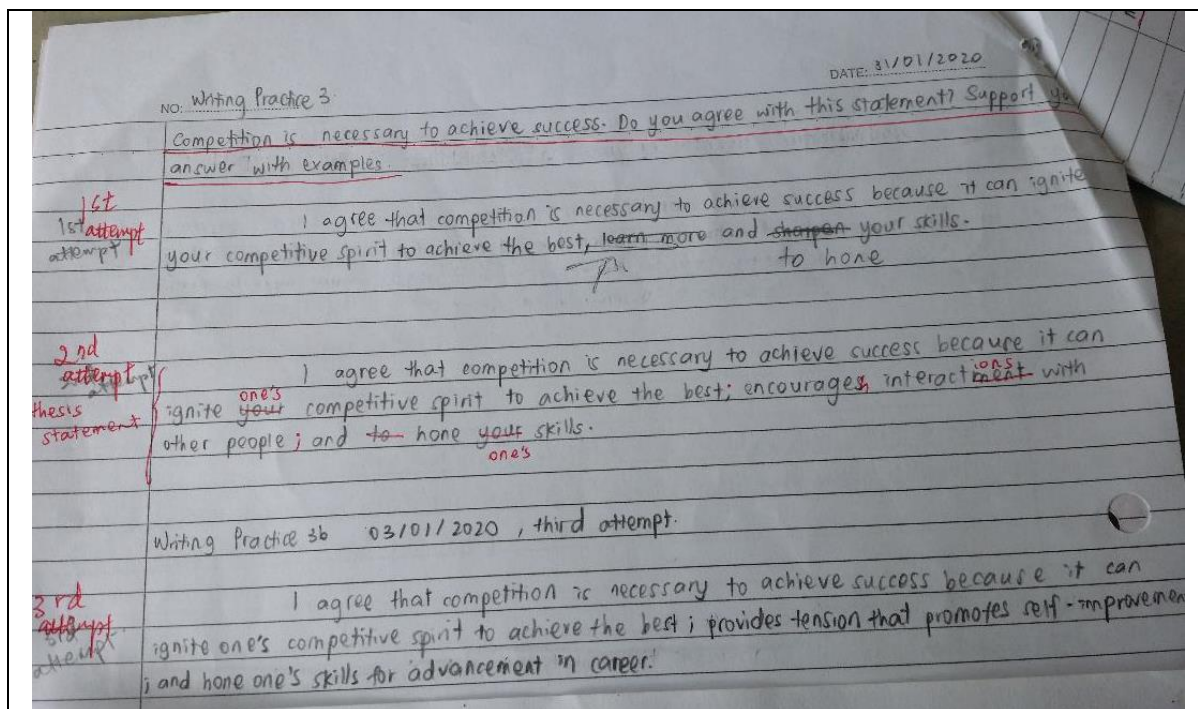 DATE: 31/01/2020
NO: Writing Practice 3.
Competition is necessary to achieve success. Do you agree with this statement? Support
answer with examples.
1st
1st attempt
attempt
I agree that competition is necessary to achieve success because it can ignite
your competitive spirit to achieve the best, learn more and sharpen your skills.
to hone
2nd
attempt
thesis
statement
I agree that competition is necessary to achieve success because it can
one's ions
ignite your competitive spirit to achieve the best; encourages interactment with
other people; and to hone your skills.
one's
Writing Practice 3b 03/01/2020, third attempt.
3rd
attempt
attempt
I agree that competition is necessary to achieve success because it can
ignite one's competitive spirit to achieve the best; provides tension that promotes self-improvemen
; and hone one's skills for advancement in career.